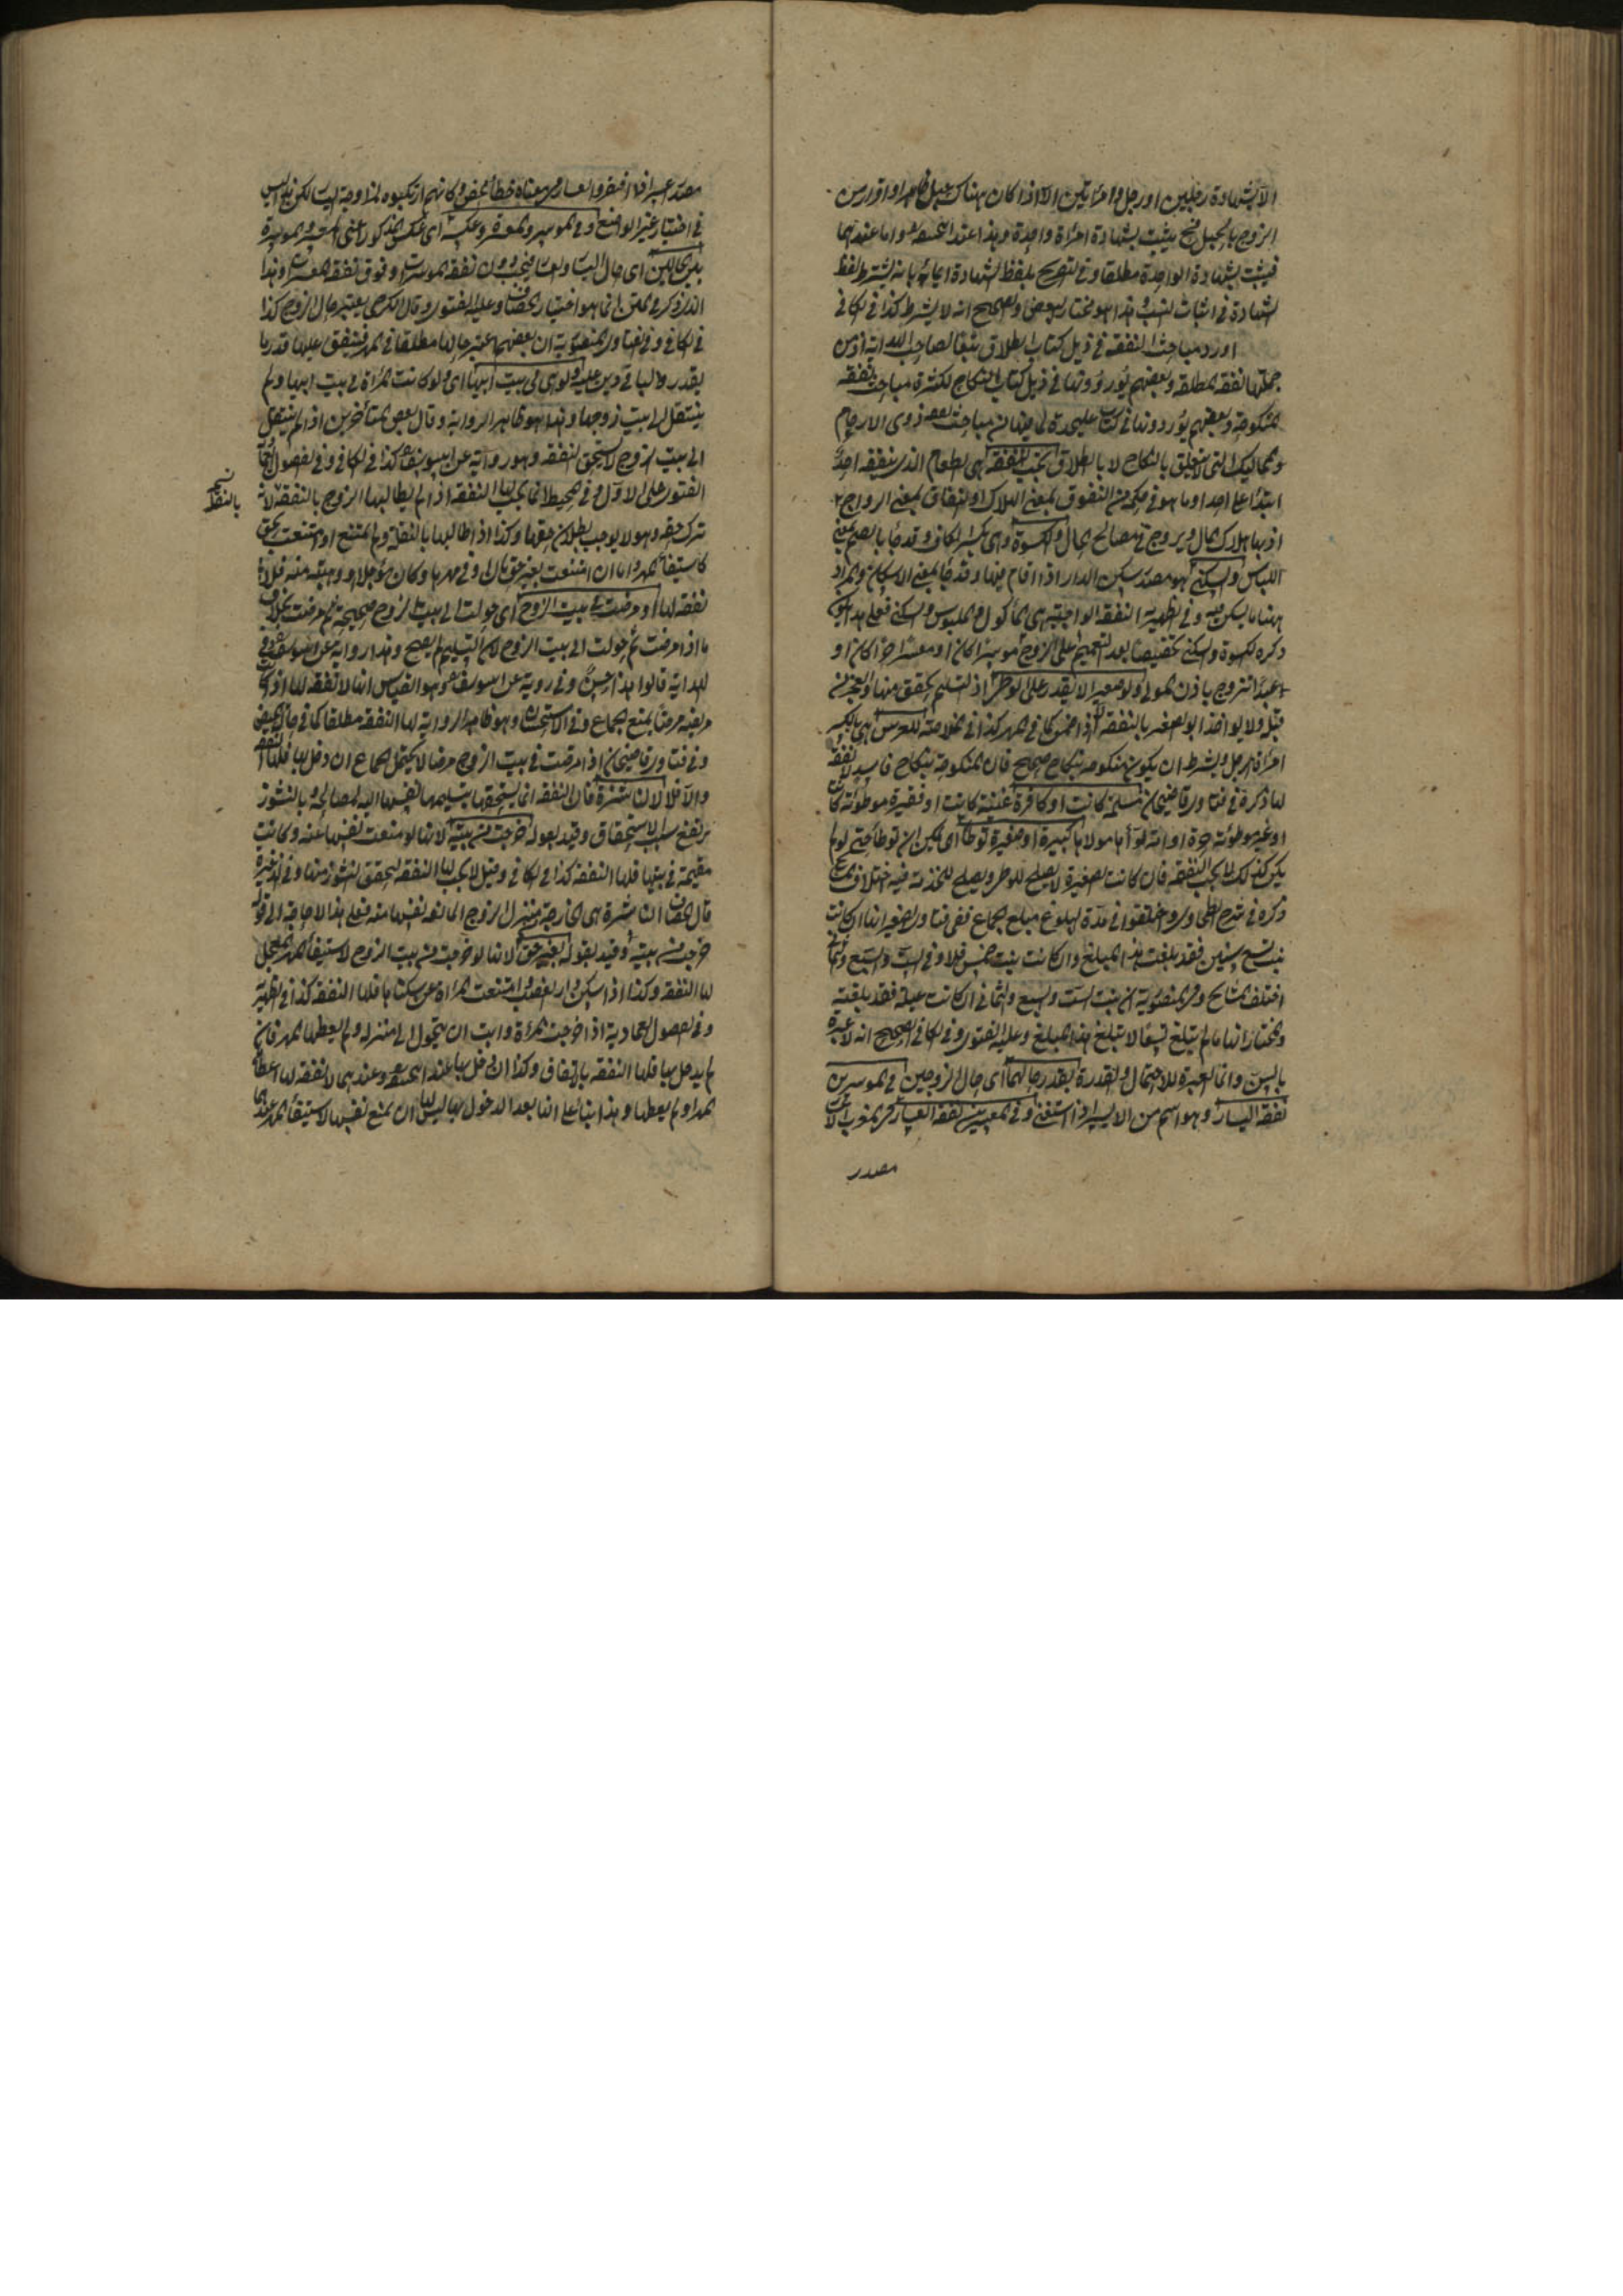 الا بشهادة رجلين او رجل وامرأتين الا اذا كان هناك حبل ظاهر او اقرار من
الزوج بالحبل فح يثبت بشهادة امرأة واحدة وهذا عند ابي حنيفة واما عندهما
فيثبت بشهادة الواحدة مطلقا وفي التصريح بلفظ الشهادة ايماء بانه يشترط لفظ
الشهادة في اثبات النسب وهذا هو مختار البعض والصحيح انه لا يشترط كذا في الكافي
اورد مباحث النفقة في ذيل كتاب الطلاق تبعا لصاحب الهداية اذ من
جملتها نفقة المطلقة وبعضهم يوردونها في ذيل كتاب النكاح لكثرة مباحث نفقة
المنكوحة وبعضهم يوردونها في كتاب عليحدة لما فيها من مباحث نفقة ذوي الارحام
والمماليك التي لا تتعلق بالنكاح ولا بالطلاق تجب النفقة هي الطعام الذي ينفقه احد
ابتداء على احد او ما هو في حكمه من النفوق بمعنى الهلاك او النفاق بمعنى الرواج
اذ بها هلاك المال ويروج في مصالح الحال والكسوة وهي بكسر الكاف وقد جاء بالضم بمعنى
اللباس والسكنى هو مصدر سكن الدار اذا اقام فيها وقد جاء بمعنى الاسكان والمراد
ههنا ما يسكن فيه وفي الظهيرية النفقة الواجبة هي المأكول والملبوس والسكنى فعلى هذا يكون
ذكره الكسوة والسكنى تخصيصا بعد التعميم على الزوج موسرا كان او معسرا حرا كان او
عبدا تزوج باذن المولى ولو صغيرا لا يقدر على الوطئ اذ التسليم تحقق منها والعجز من
قبله ولا يؤاخذ ابو الصغير بالنفقة الا اذا ضمن كما في المهر كذا في الخلاصة للعرس هي بالكسر
امرأة الرجل ويشترط ان يكون منكوحة بنكاح صحيح فان المنكوحة بنكاح فاسد لا نفقة
لها ذكره في فتاوى قاضيخان مسلمة كانت او كافرة غنية كانت او فقيرة موطوئة كانت
او غير موطوئة حرة او امة بوأها مولاها كبيرة او صغيرة توطأ اي يمكن ان توطأ حتى لو لم
يكن كذلك لا تجب النفقة فان كانت الصغيرة لا يصلح للوطئ ويصلح للخدمة فيه اختلاف المشايخ
ذكره في شرح الطحاوي واختلفوا في مدة البلوغ مبلغ الجماع ففي فتاوى الصغير انها ان كانت
بنت تسع سنين فقد بلغت هذا المبلغ وان كانت بنت خمس فلا وفي الست والسبع والثمان
اختلف المشايخ وفي المنصورية ان بنت الست والسبع والثماني ان كانت عبلة فقد بلغت
والمختار انها ما لم تبلغ تسعا لا تبلغ هذا المبلغ وعليه الفتوى وفي الكافي الصحيح انه لا عبرة
بالسن وانما العبرة للاحتمال والقدرة بقدر حالهما اي حال الزوجين في الموسرين
نفقة اليسار وهو اسم من الايسار اذا استغنى وفي المعسرين نفقة العسار في المغرب
مصدر
في اختيار غير الواضع وفي الموسر والمعسرة وعكسه اي عكس المذكور اعني المعسر والموسرة
بين الحالين اي حال اليسار والعسار فيجب دون نفقة الموسرات وفوق نفقة المعسرات وهذا
الذي ذكر في المتن انما هو اختيار الخصاف وعليه الفتوى وقال الكرخي يعتبر حال الزوج كذا
في الكافي وفي فتاوى المنصورية ان بعضهم اعتبر حالها مطلقا في المهر فينفق عليها قدر ما
يقدر والباقي دين عليه ولو هي في بيت ابيها اي ولو كانت المرأة في بيت ابيها ولم
ينتقل الى بيت زوجها وهذا هو ظاهر الرواية وقال بعض المتأخرين اذا لم ينتقل
الى بيت الزوج لا يستحق النفقة وهو رواية عن ابي يوسف كذا في الكافي وفي الفصول
الفتوى على الاول وفي المحيط انما يجب لها النفقة اذا لم يطالبها الزوج بالنفقة لانه
بالنقلة
ترك حقه وهو لا يوجب بطلان حقها وكذا اذا طالبها بالنقلة ولم تمتنع او امتنعت بحق
كاستيفاء المهر واما ان امتنعت بغير حق بان اوفى مهرها وكان مؤجلا او وهبته منه فلا
نفقة لها او مرضت في بيت الزوج اي حولت الى بيت الزوج صحيحة ثم مرضت بخلاف
ما اذا مرضت ثم حولت الى بيت الزوج لان التسليم لم يصح وهذا رواية عن ابي يوسف وفي
الهداية قالوا هذا حسن وفي رواية عن ابي يوسف وهو القياس انها لا نفقة لها اذا كانت
مريضة مرضا يمنع الجماع وفي الاستحسان وهو ظاهر الرواية لها النفقة مطلقا كما في حال الحيض
وفي فتاوى قاضيخان اذا مرضت في بيت الزوج مرضا لا يحتمل الجماع ان دخل بها فلها النفقة
والا فلا لا ناشزة فان النفقة انما يستحقها بتسليمها نفسها اليه لمصالحه وبالنشوز
يرتفع سبب الاستحقاق وقيد بقوله خرجت من بيته لانها لو منعت نفسها عنه وكانت
مقيمة في بيتها فلها النفقة كذا في الكافي وقيل لا يجب لها النفقة لتحقق النشوز منها وفي الذخيرة
قال الخصاف الناشزة هي الخارجة عن منزل الزوج المانعة نفسها منه فعلى هذا لا حاجة الى قوله
خرجت من بيته وقيد بقوله بغير حق لانها لو خرجت من بيت الزوج لاستيفاء المهر المعجل
لها النفقة وكذا اذا سكن دار الغصب امتنعت المرأة عن سكناها فلها النفقة كذا في الظهيرية
وفي الفصول العمادية اذا خرجت المرأة وابت ان يتحول الى منزله ولم يعطها المهر فان
لم يدخل بها فلها النفقة بالاتفاق وكذا ان دخل بها عند ابي حنيفة وعندهما لا نفقة لها اعطاها
المهر او لم يعطها وهذا بناء على انها بعد الدخول بها ليس لها ان تمنع نفسها لاستيفاء المهر عندهما